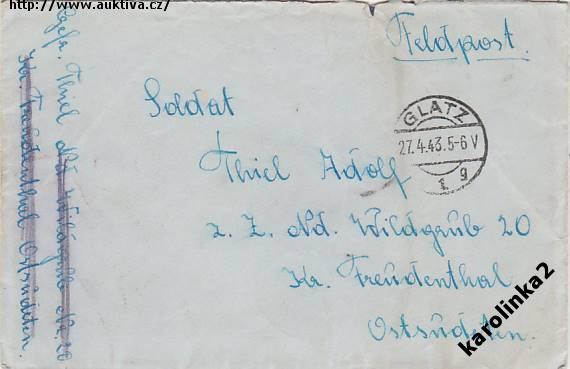 http://www.auktiva.cz/
Feldpost.
GLATZ
27.4.43.5-6 V
g
Soldat
Thiel Adolf
z. Z. Nd. Wildgrub 20
Kr. Freudenthal
Ostsudeten.
Thiel Nd. Wildgrub Nr. 20
Kr. Freudenthal Ostsudeten.
karolinka2